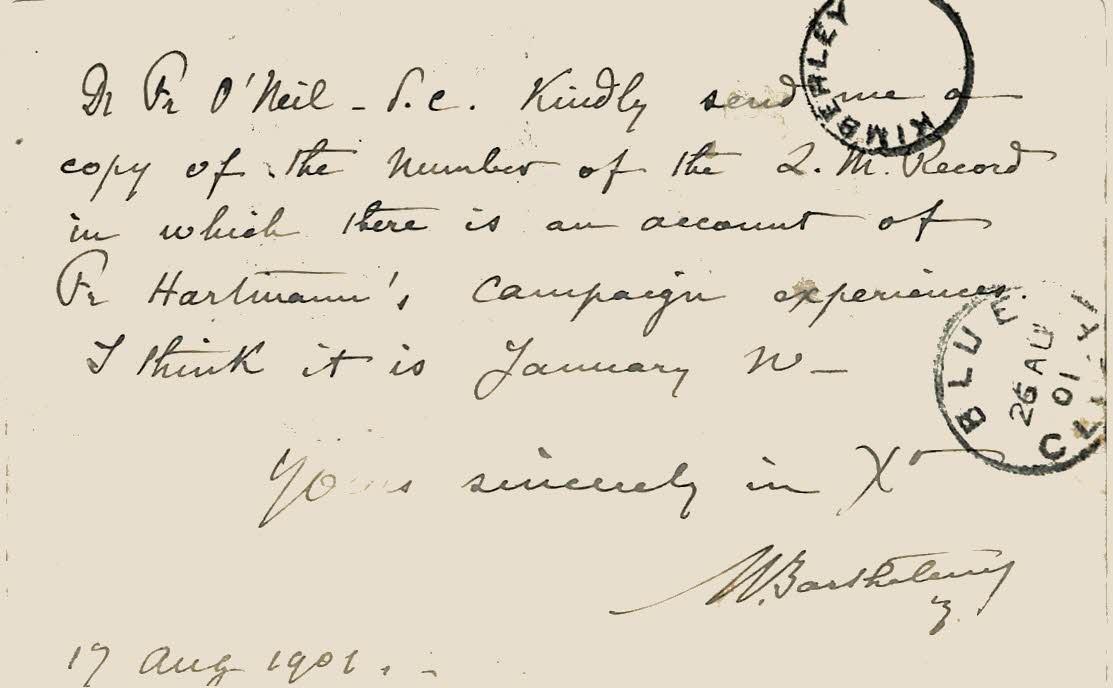 Dr Fr O'Neil - P.C. Kindly send me a
copy of the number of the Z. M. Record
in which there is an account of
Fr Hartmann's campaign experiences.
I think it is January N—
Yours sincerely in Xº
M. Barthelemy
17 Aug 1901.
KIMBERLEY
BLUE
26 AU
01